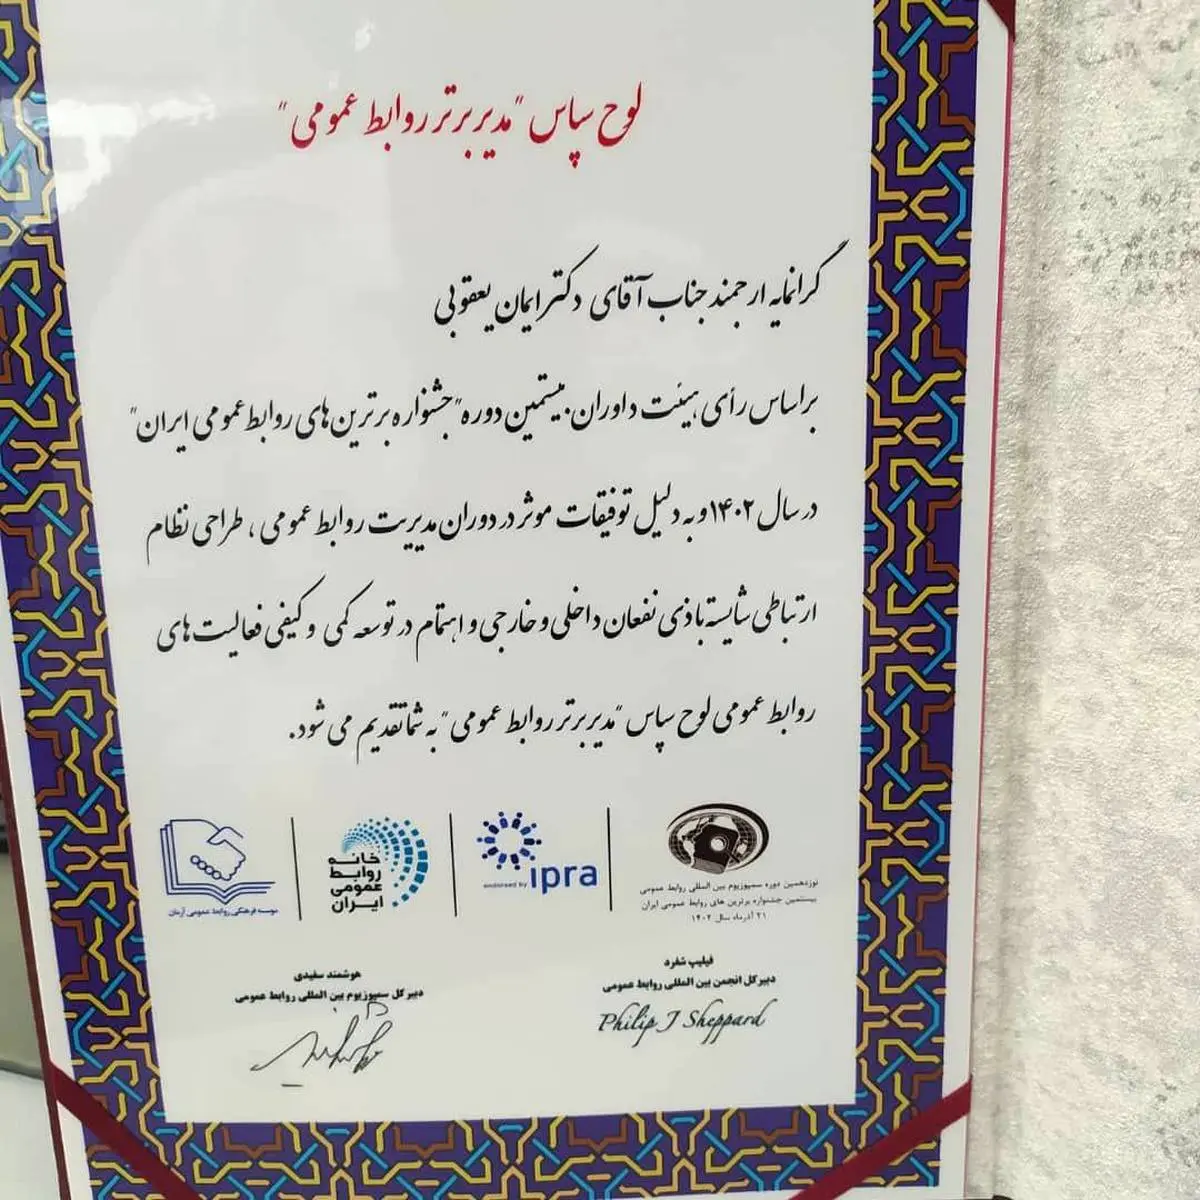 لوح سپاس "مدیر برتر روابط عمومی"
گرانمایه ارجمند جناب آقای دکتر ایمان یعقوبی
براساس رأی هیئت داوران بیستمین دوره "جشنواره برترین های روابط عمومی ایران"
در سال ۱۴۰۲ و به دلیل توفیقات موثر در دوران مدیریت روابط عمومی ، طراحی نظام
ارتباطی شایسته با ذی نفعان داخلی و خارجی و اهتمام در توسعه کمی و کیفی فعالیت های
روابط عمومی لوح سپاس "مدیر برتر روابط عمومی" به شما تقدیم می شود.
نوزدهمین دوره سمپوزیوم بین المللی روابط عمومی
بیستمین جشنواره برترین های روابط عمومی ایران
۲۱ آذرماه سال ۱۴۰۲
ipra
endorsed by
خانه
روابط
عمومی
ایران
موسسه فرهنگی روابط عمومی آرمان
فیلیپ شفرد
دبیر کل انجمن بین المللی روابط عمومی
Philip J Sheppard
هوشمند سفیدی
دبیر کل سمپوزیوم بین المللی روابط عمومی